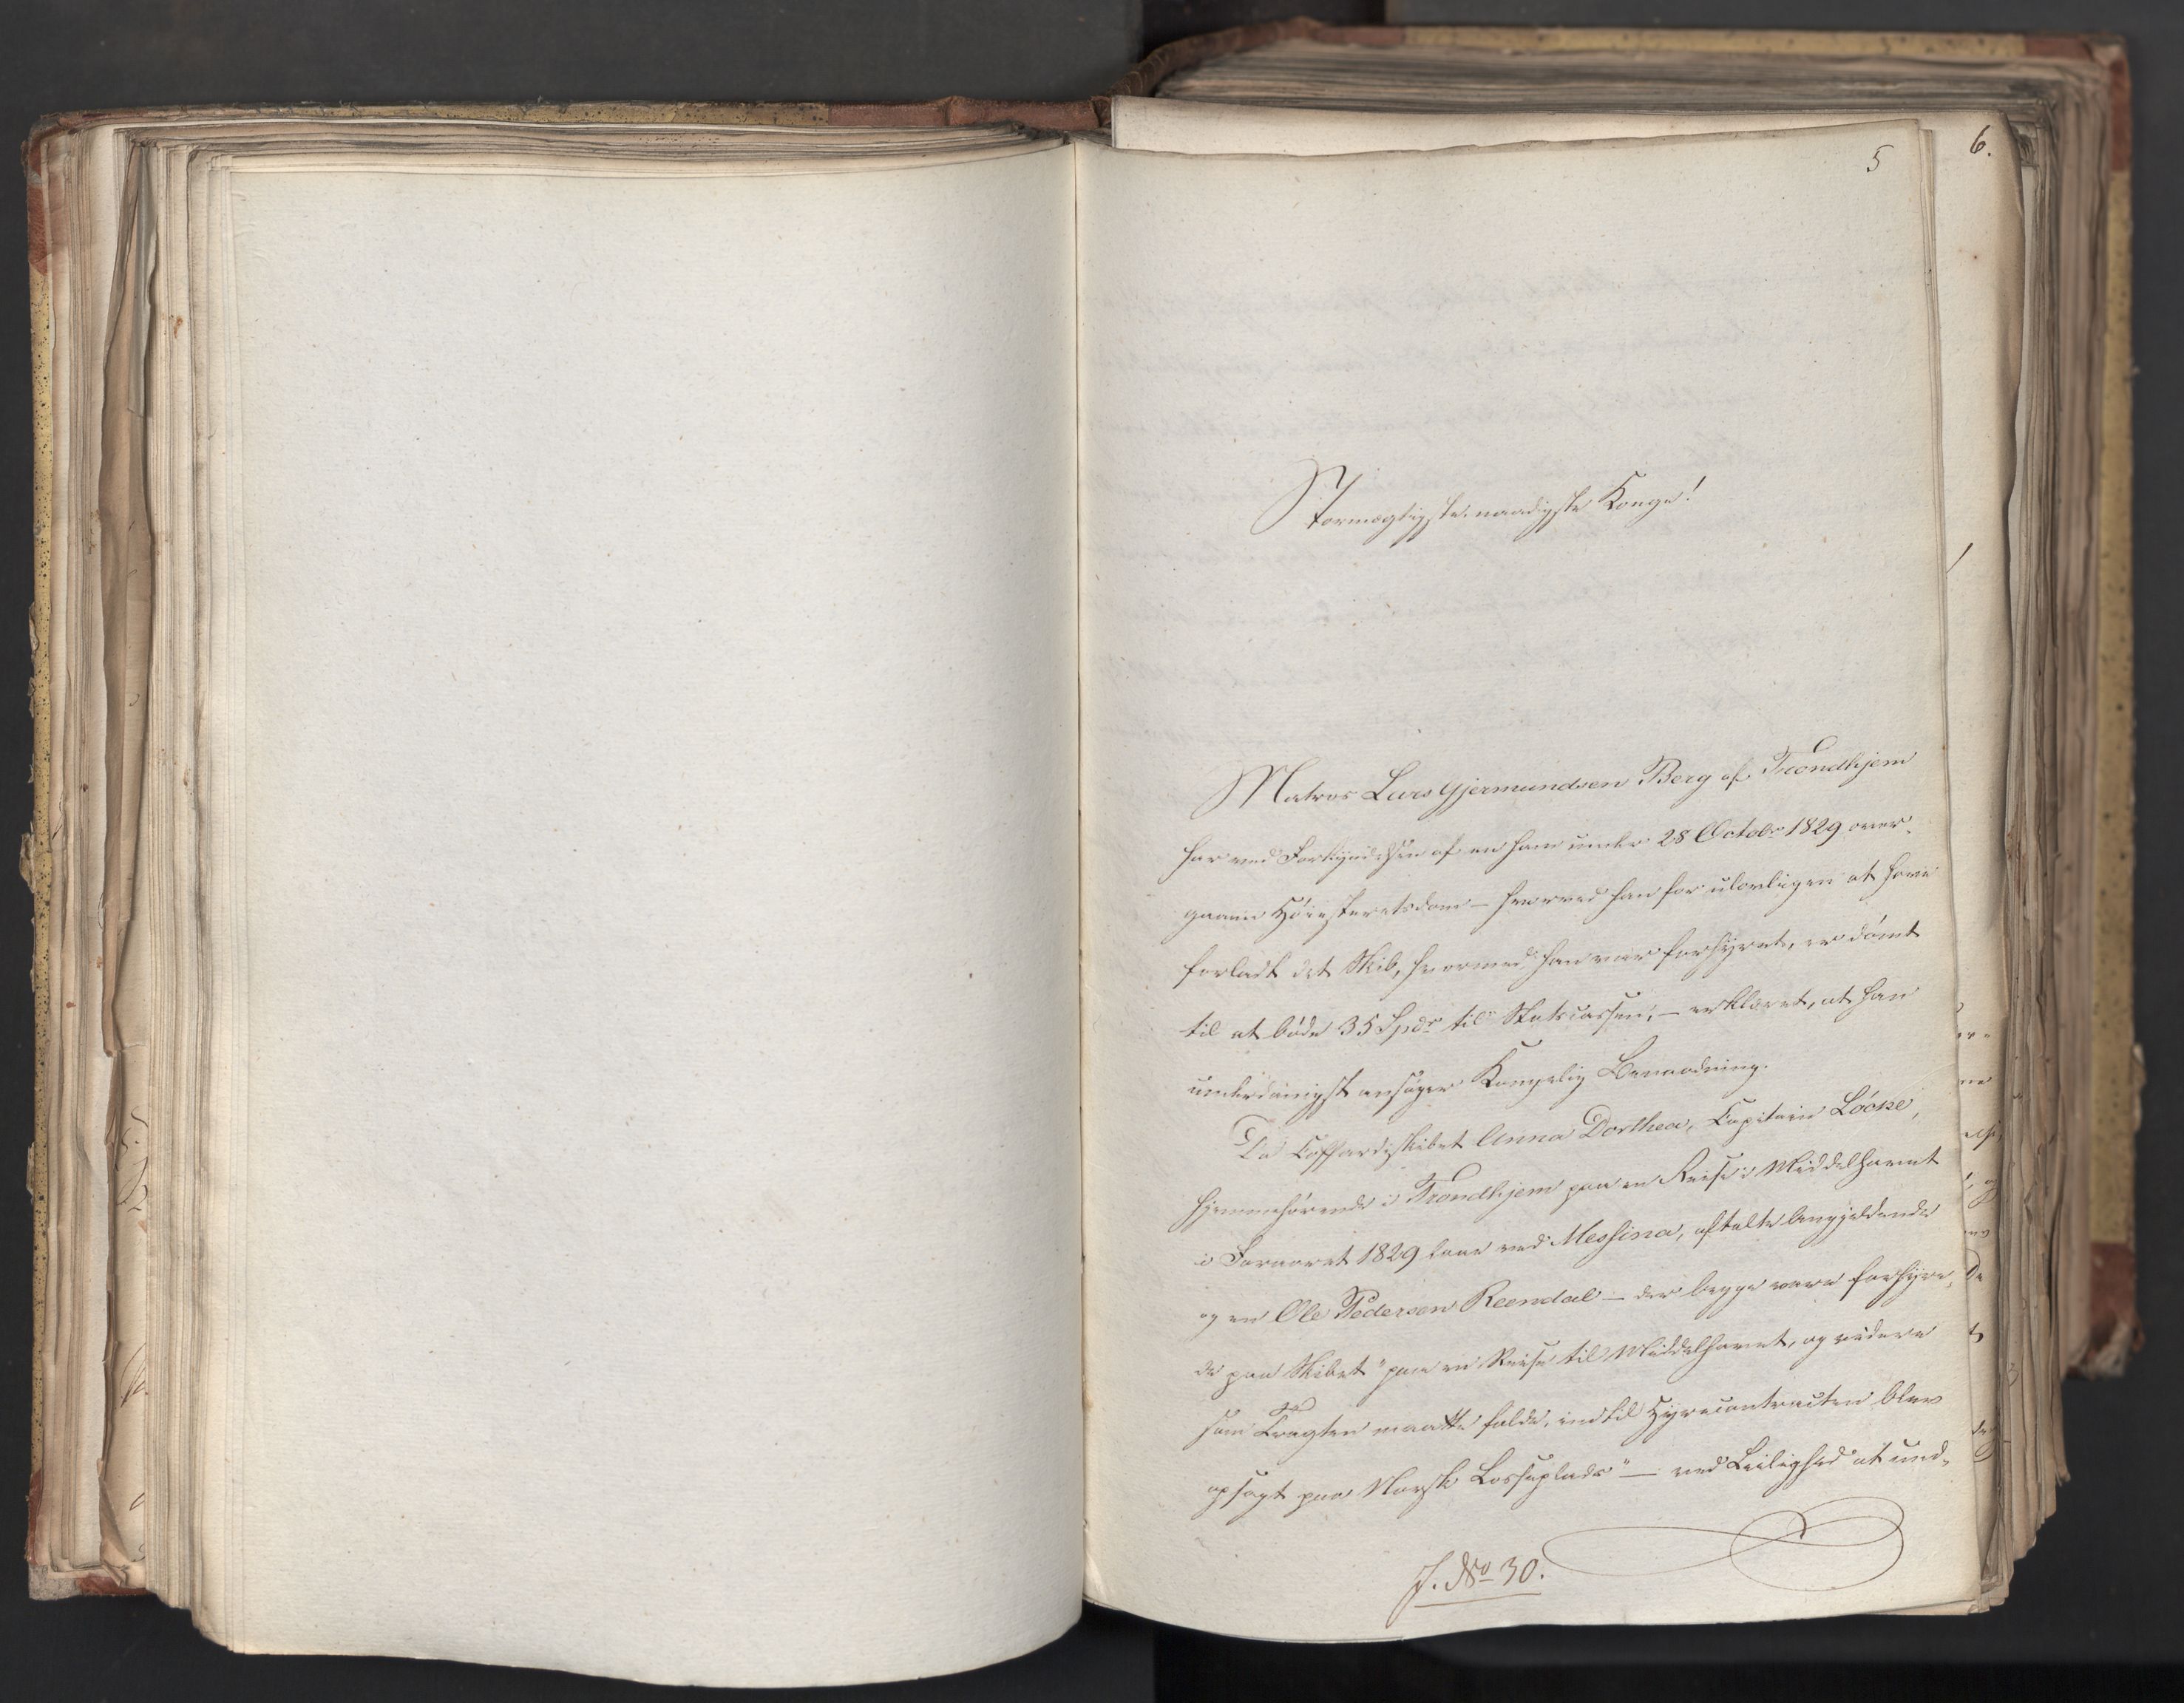 5
6.
Stormægtigste naadigste Konge!
Matros Lars Gjermundsen Berg af Trondhjem
har ved Forkyndelsen af en ham under 28 Octobr 1829 over-
gaaen Høiesteretsdom – hvorved han for ulovligen at have
forladt det Skib, hvormed han var forhyret, er dømt
til at bøde 35 Spdr til Statscassen, – erklæret, at han
underdanigst ansøger Kongelig Benaadning.
Da Coffardiskibet Anna Dorthea, Capitain Loose,
hjemmehørende i Trondhjem paa en Reise i Middelhavet
i Foraaret 1829 laae ved Messina, aftalte Angjeldende
og en Ole Pedersen Reendal – der begge vare forhyre-
de paa Skibet "paa en Reise til Middelhavet, og videre
som Fragten maatte falde, indtil Hyrecontracten blev
opsagt paa Norsk Losseplads" – ved Leilighed at und-
J. No 30.